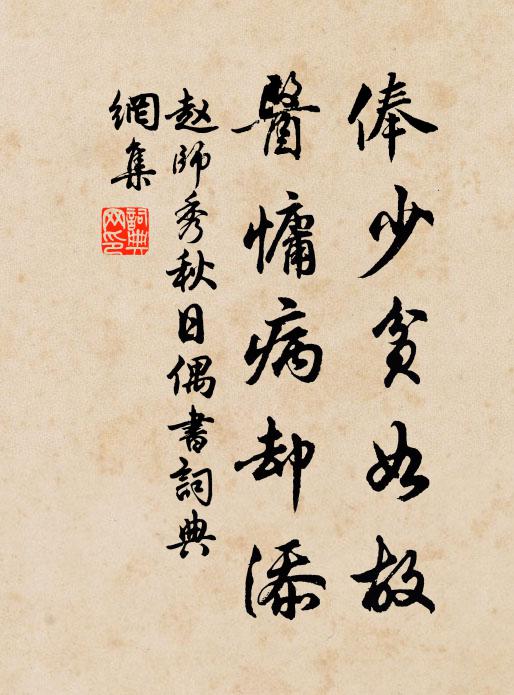 俸少貧如故
醫慵病却添
赵師秀秋日偶書詞典
網集
詞典網印